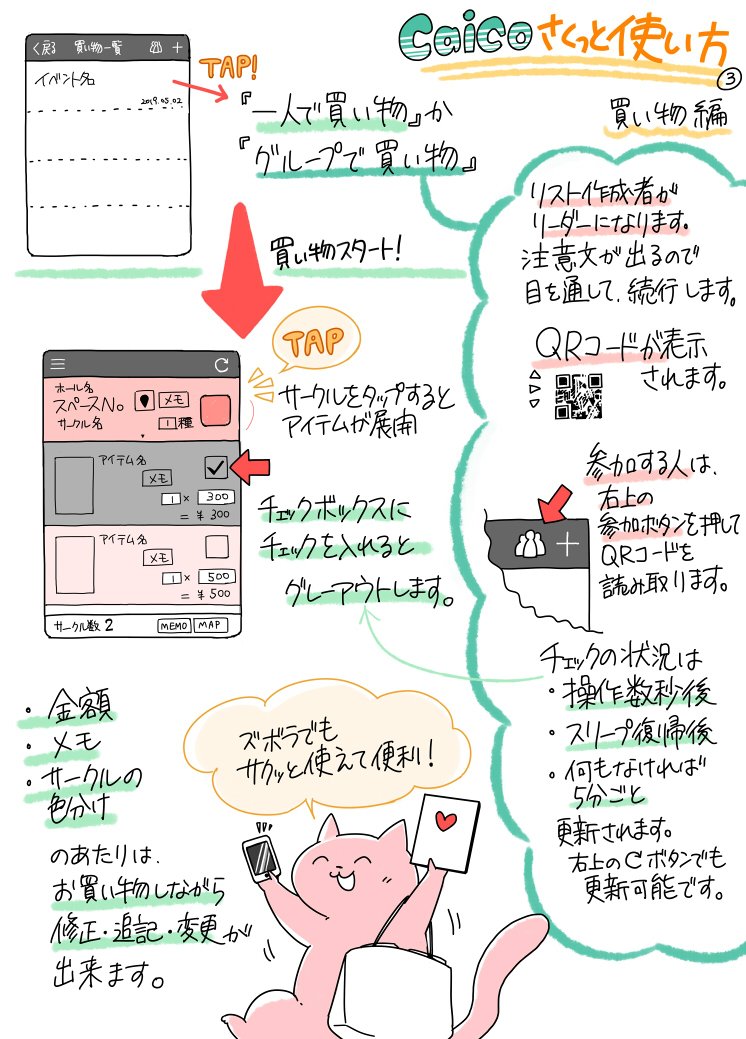 Caico さくっと使い方
③
買い物編
く戻る 買い物一覧 +
イベント名
2019.05.02
TAP!
『一人で買い物』か
『グループで買い物』
買い物スタート!
TAP
サークルをタップすると
アイテムが展開
ホール名
スペースNo
メモ
サークル名
1種
アイテム名
メモ
1 × 300
= ¥ 300
アイテム名
メモ
1 × 500
= ¥ 500
サークル数 2
MEMO MAP
チェックボックスに
チェックを入れると
グレーアウトします。
リスト作成者が
リーダーになります。
注意文が出るので
目を通して、続行します。
QRコードが表示
されます。
参加する人は、
右上の
参加ボタンを押して
QRコードを
読み取ります。
チェックの状況は
・操作数秒後
・スリープ復帰後
・何もなければ
5分ごと
更新されます。
右上のCボタンでも
更新可能です。
・金額
・メモ
・サークルの
色分け
のあたりは、
お買い物しながら
修正・追記・変更が
出来ます。
ズボラでも
サクッと使えて便利!